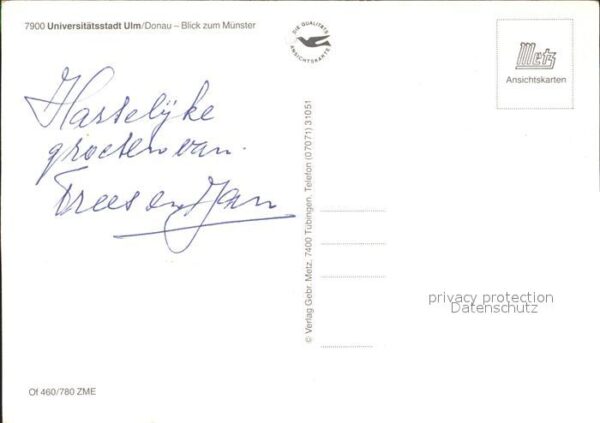 7900 Universitätsstadt Ulm/Donau – Blick zum Münster
DIE QUALITÄTS
ANSICHTSKARTE
Metz
Ansichtskarten
Hartelijke
groeten van
Trees en Jan
© Verlag Gebr. Metz, 7400 Tübingen, Telefon (07071) 31051
privacy protection
Datenschutz
Of 460/780 ZME